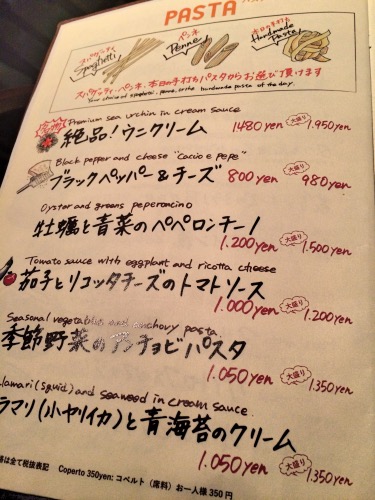 PASTA
スパゲッティ
Spaghetti
ペンネ
Penne
本日の手打ち
Handmade
Pasta
スパゲッティ・ペンネ・本日の手打ちパスタからお選び頂けます
Your choice of spaghetti, penne, or the handmade pasta of the day.
Premium sea urchin in cream sauce
絶品!ウニクリーム 1480yen 大盛り 1,950yen
Black pepper and cheese "cacio e pepe"
ブラックペッパー&チーズ 800yen 大盛り 980yen
Oyster and greens peperoncino
牡蠣と青菜のペペロンチーノ
1.200yen 大盛り 1,500yen
Tomato sauce with eggplant and ricotta cheese
茄子とリコッタチーズのトマトソース
1.000yen 大盛り 1,200yen
Seasonal vegetables and anchovy pasta
季節野菜のアンチョビパスタ
1.050yen 大盛り 1,350yen
alamari (squid) and seaweed in cream sauce
ラマリ(小ヤリイカ)と青海苔のクリーム
1.050yen 大盛り 1,350yen
格は全て税抜表記 Coperto 350yen: コペルト(席料)お一人様 350円